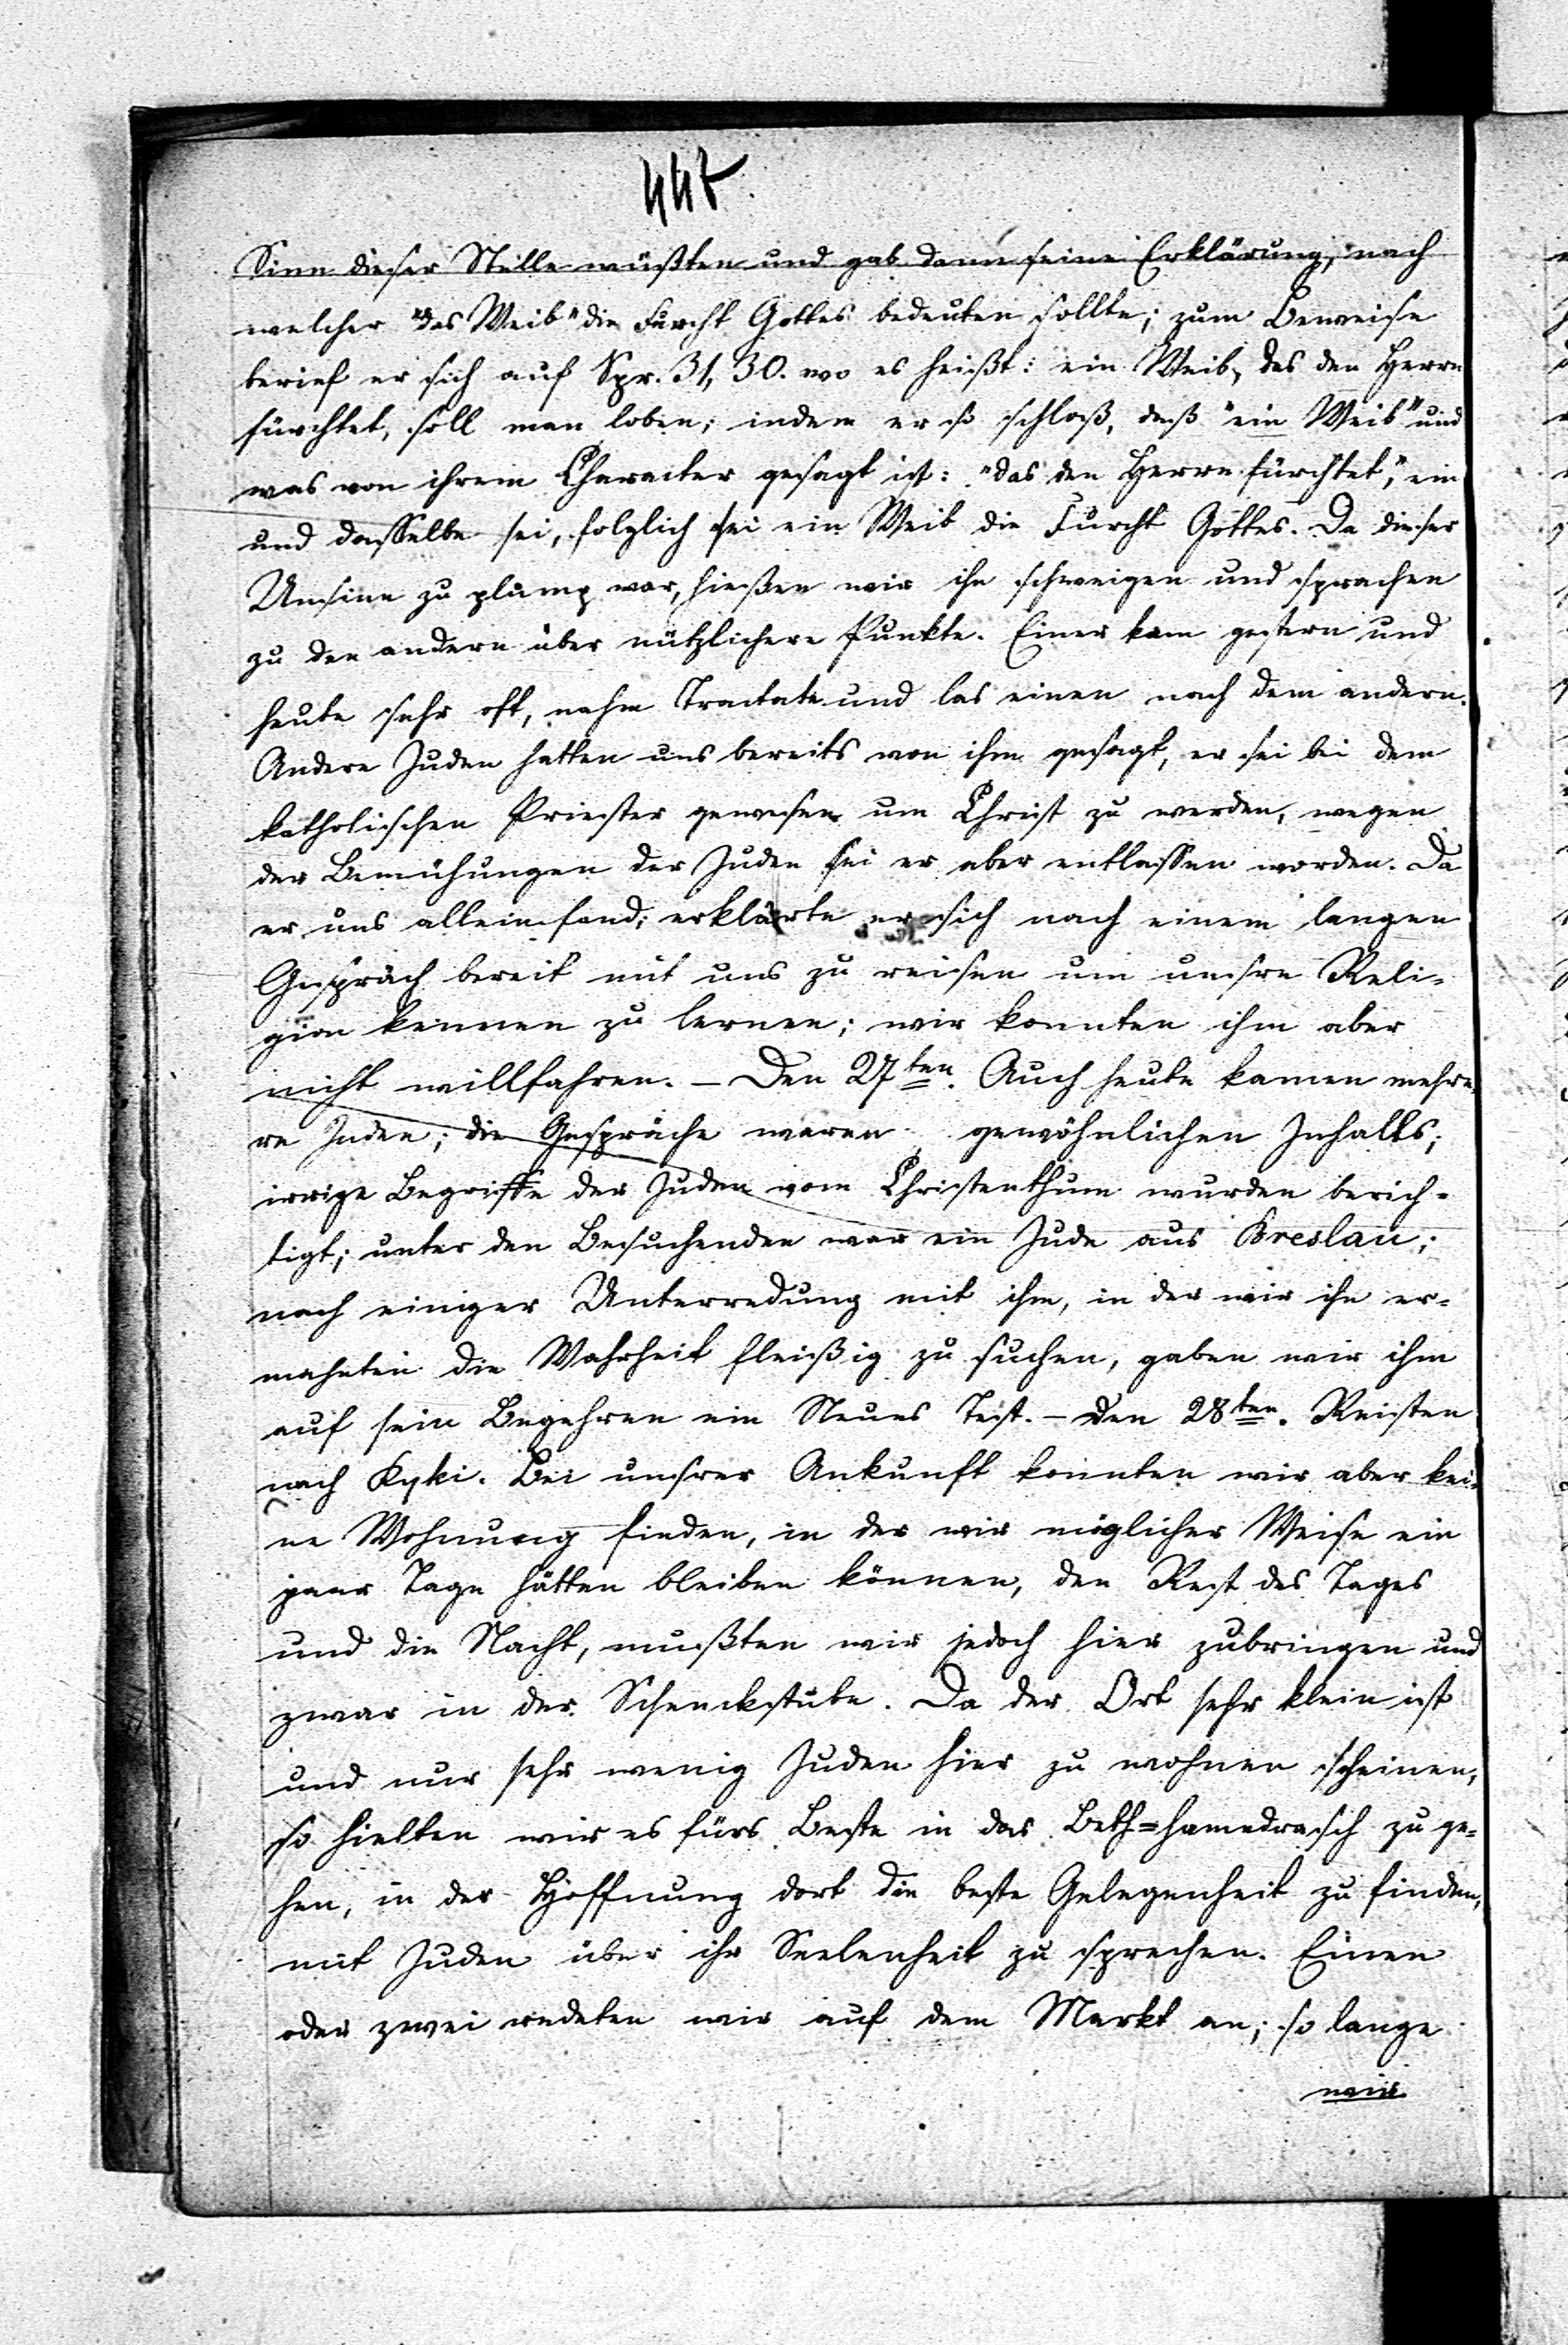 Sinn dieser Stelle wüßten und gab dann seine Erklärung, nach
welcher "das Weib" die Furcht Gottes bedeuten sollte; zum Beweise
berief er sich auf Spr. 31, 30. wo es heißt: ein Weib, das den Herrn
fürchtet, soll man loben; indem er so schloß, daß "ein Weib" und
was von ihrem Character gesagt ist: "das den Herrn fürchtet," ein
und dasselbe sei, folglich sei ein Weib die Furcht Gottes. Da dieser
Unsinn zu plump war, hießen wir ihn schweigen und sprachen
zu den andern über nützlichere Punkte. Einer kam gestern und
heute sehr oft, nahm Tractate und las einen nach dem andern.
Andere Juden hatten uns bereits von ihm gesagt, er sei bei dem
katholischen Priester gewesen um Christ zu werden, wegen
der Bemühungen der Juden sei er aber entlassen worden. Da
er uns allein fand; erklärte er sich nach einem langen
Gespräch bereit mit uns zu reisen um unsre Reli-
gion kennen zu lernen; wir konnten ihm aber
nicht willfahren. – Den 27ten. Auch heute kamen mehre-
re Juden; die Gespräche waren gewöhnlichen Inhalts;
irrige Begriffe der Juden vom Christenthum wurden berich-
tigt; unter den Besuchenden war ein Jude aus Breslau;
nach einiger Unterredung mit ihm, in der wir ihn er-
mahnten die Wahrheit fleißig zu suchen, gaben wir ihm
auf sein Begehren ein Neues Test. – Den 28ten. Reisten
nach Kyki. Bei unsrer Ankunft konnten wir aber kei-
ne Wohnung finden, in der wir möglicher Weise ein
paar Tage hätten bleiben können, den Rest des Tages
und die Nacht, mußten wir jedoch hier zubringen und
zwar in der Schenckstube. Da der Ort sehr klein ist
und nur sehr wenig Juden hier zu wohnen scheinen,
so hielten wir es fürs Beste in das Beth-hamedrasch zu ge-
hen, in der Hoffnung dort die beste Gelegenheit zu finden,
mit Juden über ihr Seelenheil zu sprechen. Einen
oder zwei redeten wir auf dem Markt an; so lange
wir